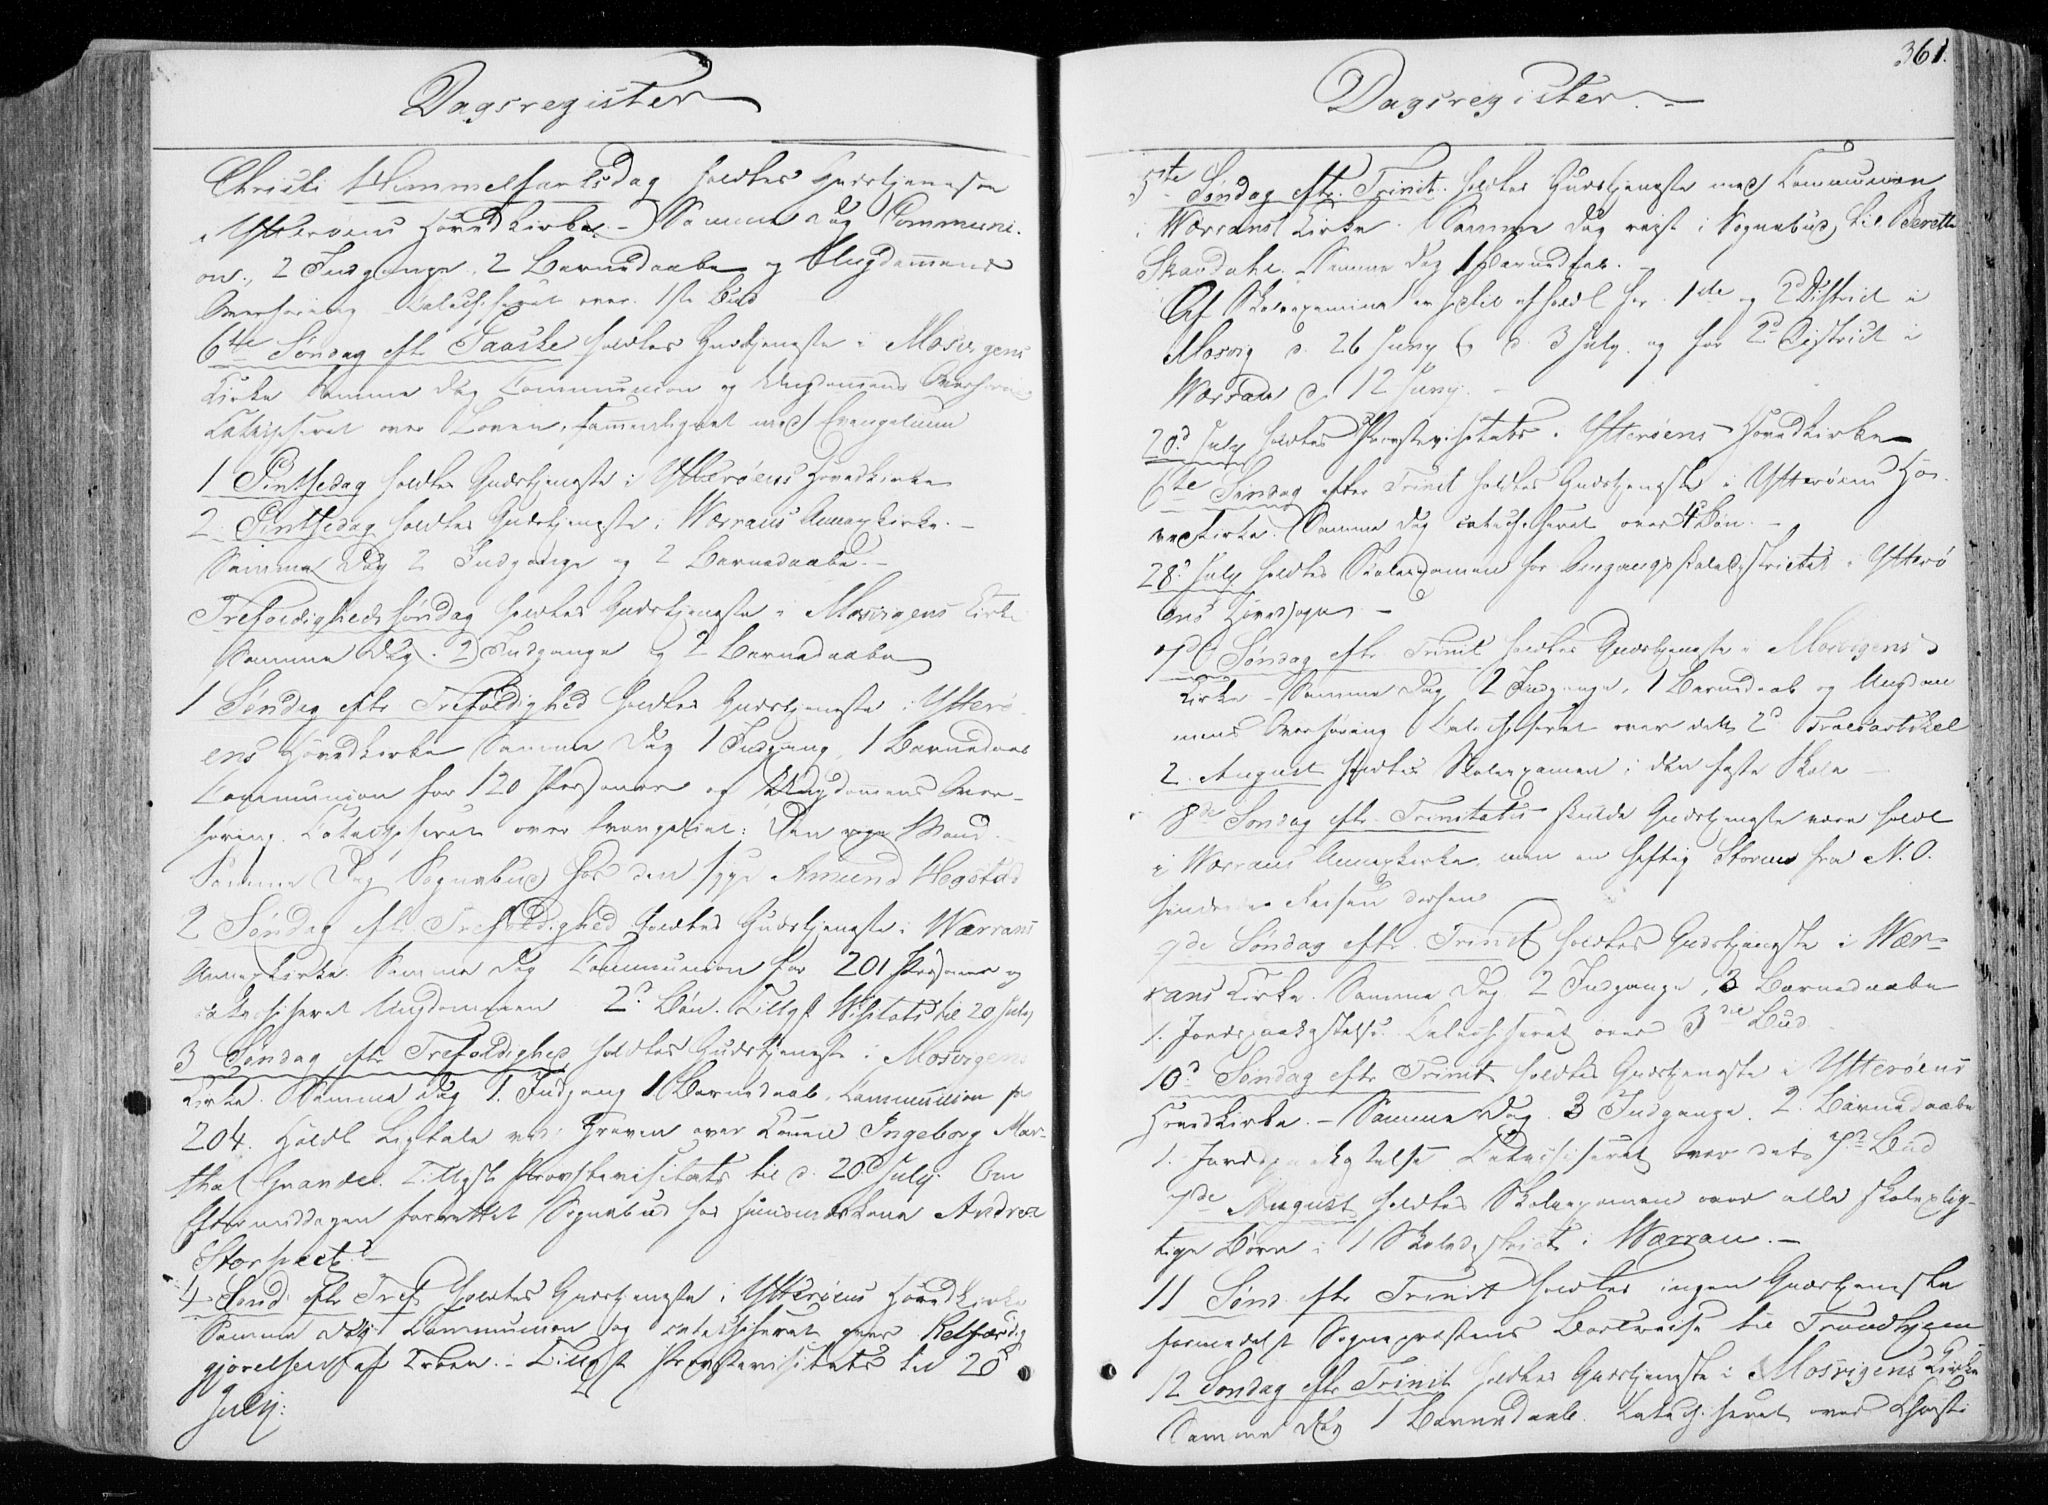 Dagsregister
Christi Himmelfartsdag holdtes Gudstjeneste
i Ytterøens Hovedkirke. – Samme Dag Communi-
on, 2 Indgange, 2 Barnedaabe og Ungdommens
Overhøring Catechiseret over 1ste Bud
6te Søndag eftr Paaske holdtes Gudstjeneste i Mosvigens
Kirke Samme Dag Communion og Ungdommens Overhøring
Catechiseret over Loven, sammenlignet med Evangelium
1 Pintsedag holdtes Gudstjeneste i Ytterøens Hovedkirke
2 Pintsedag holdtes Gudstjeneste i Værrans Annexkirke. –
Samme Dag 2 Indgange og 2 Barnedaabe. –
Trefoldigheds søndag holdtes Gudstjeneste i Mosvigens Kirke
Samme Dag 2 Indgange og 2 Barnedaabe
1 Søndag eftr Trefoldighed holdtes Gudstjeneste i Ytterø-
ens Hovedkirke Samme Dag 1 Indgang, 1 Barnedaab
Communion for 120 Personer og Ungdommens Over-
høring. Catechiseret over Evangeliet: Den rige Mand.
Samme Dag Sognebud hos den syge Amund Hegstad
2 Søndag eftr Trefoldighed holdtes Gudstjeneste i Værrans
Annexkirke. Samme Dag Communion for 201 Personer og
catechiseret Ungdommen 2d Bøn. Tillyst Visitats til 20 July
3 Søndag eftr Trefoldighed holdtes Gudstjeneste i Mosvigens
Kirke. Samme Dag 1 Indgang 1 Barnedaab, Communion for
204. Holdt Ligtale ved Graven over Konen Ingeborg Mar-
tha Grande. Tillyst Provstevisitats til d. 20d July. Om
Eftermiddagen forrettet Sognebud hos Huusmandskone Andrea
4 Sønd. eftr Tref. holdtes Gudstjeneste i Ytterøens Hovedkirke
Samme Dag Communion og catechiseret over Retfærdig
gjørelsen af Troen. – Tillyst Provstevisitats til 20d
July.
361.
Dagsregister. –
5te Søndag eftr. Trinit. holdtes Gudstjeneste med Communion
i Værrans Kirke. Samme Dag reist i Sognebud til Berette
Skavdahl. Samme Dag 1 Barnedaab. –
Af Skoleexamina er hidtil afholdt for 1de og 2 District i
Mosvig d. 26 Juny & d. 3 July. og for 2d District i
Værran d. 12 Juny. –
20d July holdtes Provstevisitats i Ytterøens Hovedkirke
6te Søndag efter Trinit holdtes Gudstjeneste i Ytterøens Ho-
vedkirke. Samme Dag catechiseret over 4d Bøn. –
28d July holdtes Skoleexamen for Omgangsskoledistrictet i Ytterø
ens Hovedsogn –
7de Søndag eftr Trinit holdtes Gudstjeneste i Mosvigens
Kirke – Samme Dag 2 Indgange, 1 Barnedaab og Ungdom
mens Overhøring Catechiseret over dett 2d Troesartikel
2 August holdtes Skoleexamen i den faste Skole –
8de Søndag eftr Trinitatis skulde Gudstjeneste være holdt
i Værrans Annexkirke, men en heftig Storm fra N. O.
hindrede Reisen derhen
9de Søndag eftr. Trinit holdtes Gudstjeneste i Vær-
rans Kirke. Samme Dag 2 Indgange, 3 Barnedaabe
1. Jordspaakastelse. Catechiseret over 3die Bud
10d Søndag eftr Trinit holdtes Gudstjeneste i Ytterøens
Hovedkirke. – Samme Dag 3 Indgange. 2 Barnedaabe
1. Jordspaakastelse Catechiseret over det 7d Bud
7de August holdtes Skoleexamen over alle skoleplig-
tige Børn i 1 Skoledistrict i Værran. –
11 Sønd. eftr Trinit holdtes ingen Gudstjeneste
formedelst Sognepræstens Bortreise til Trondhjem
12 Søndag eftr Trinit holdtes Gudstjeneste i Mosvigens Kirke
Samme Dag 1 Barnedaab. Catechiseret over Christi